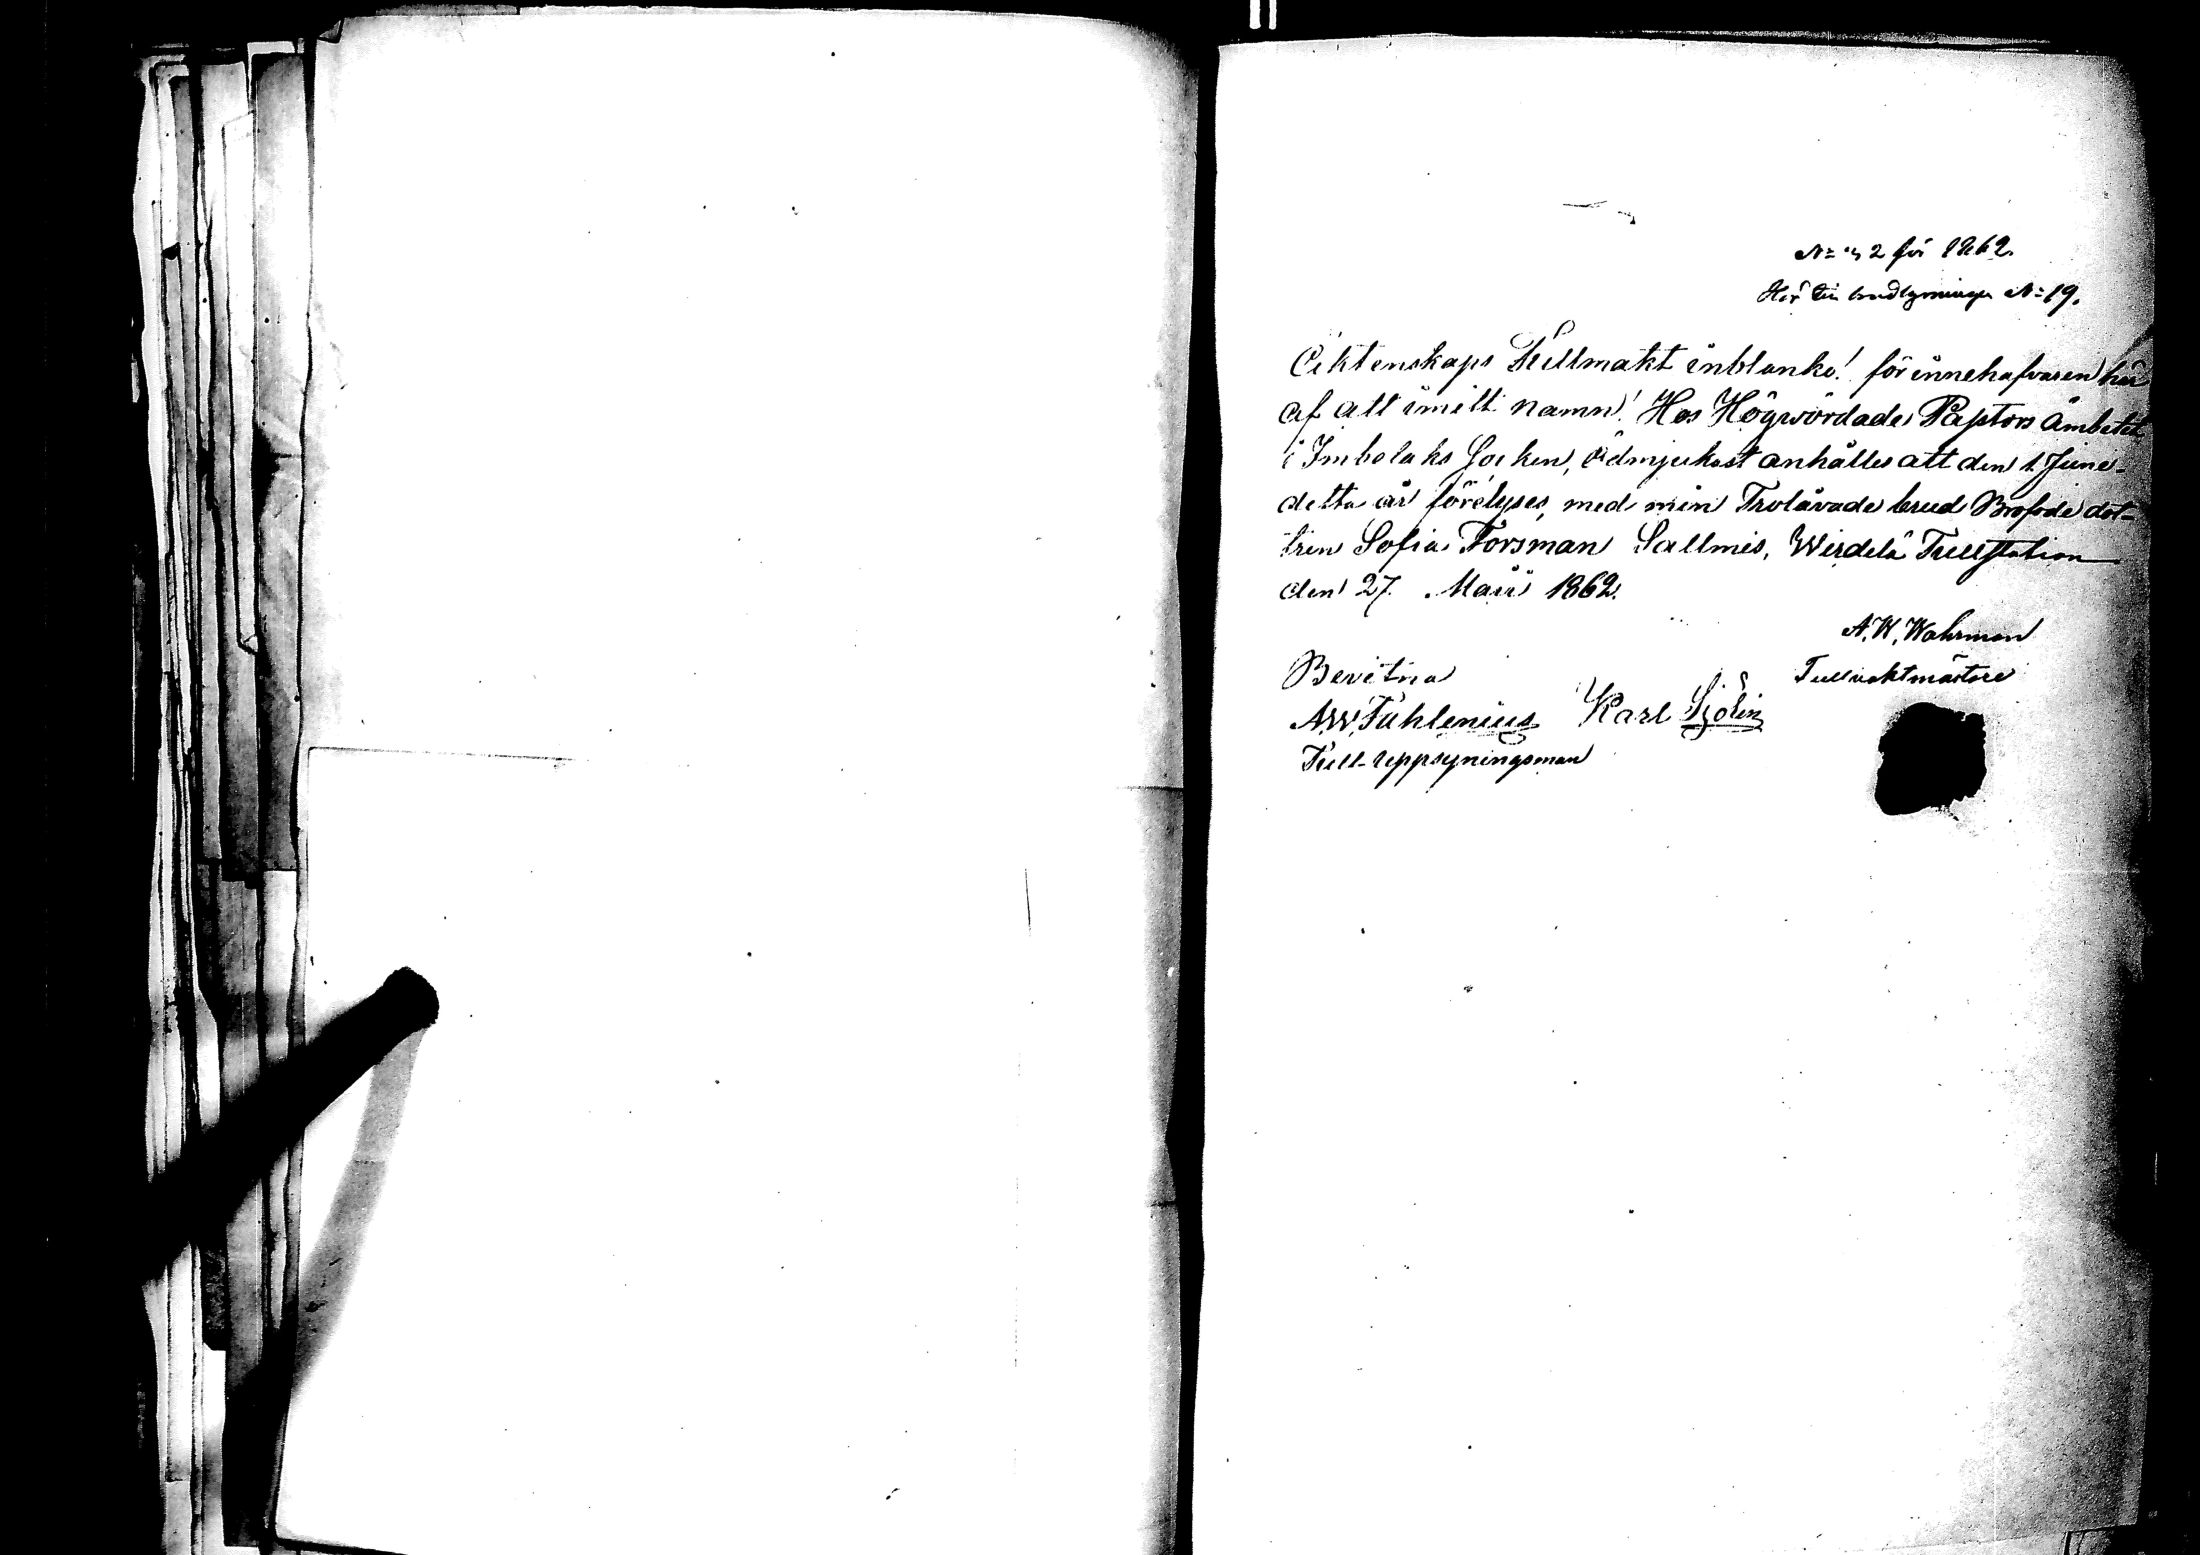 för 1862.
Hör till No 19.
Ecktenskaps Fullmakt inblanko! för innehafvaren här
af att i mitt namn! Hos Högwördade Pastors Ämbetet
i Imbelaks Socken, ödmjukast anhålles att den 1 Junii
detta år förelyses, med min Trolåvade brud dot-
tren Sofia Forsman Sallmis, Wirdelä Tullstation
den 27. Maii 1862.
A. W. Wahrman
Tullvaktmästare
Bevitna
A. W. Fahlenius Karl Sjölin
Tull-Uppsyningsman